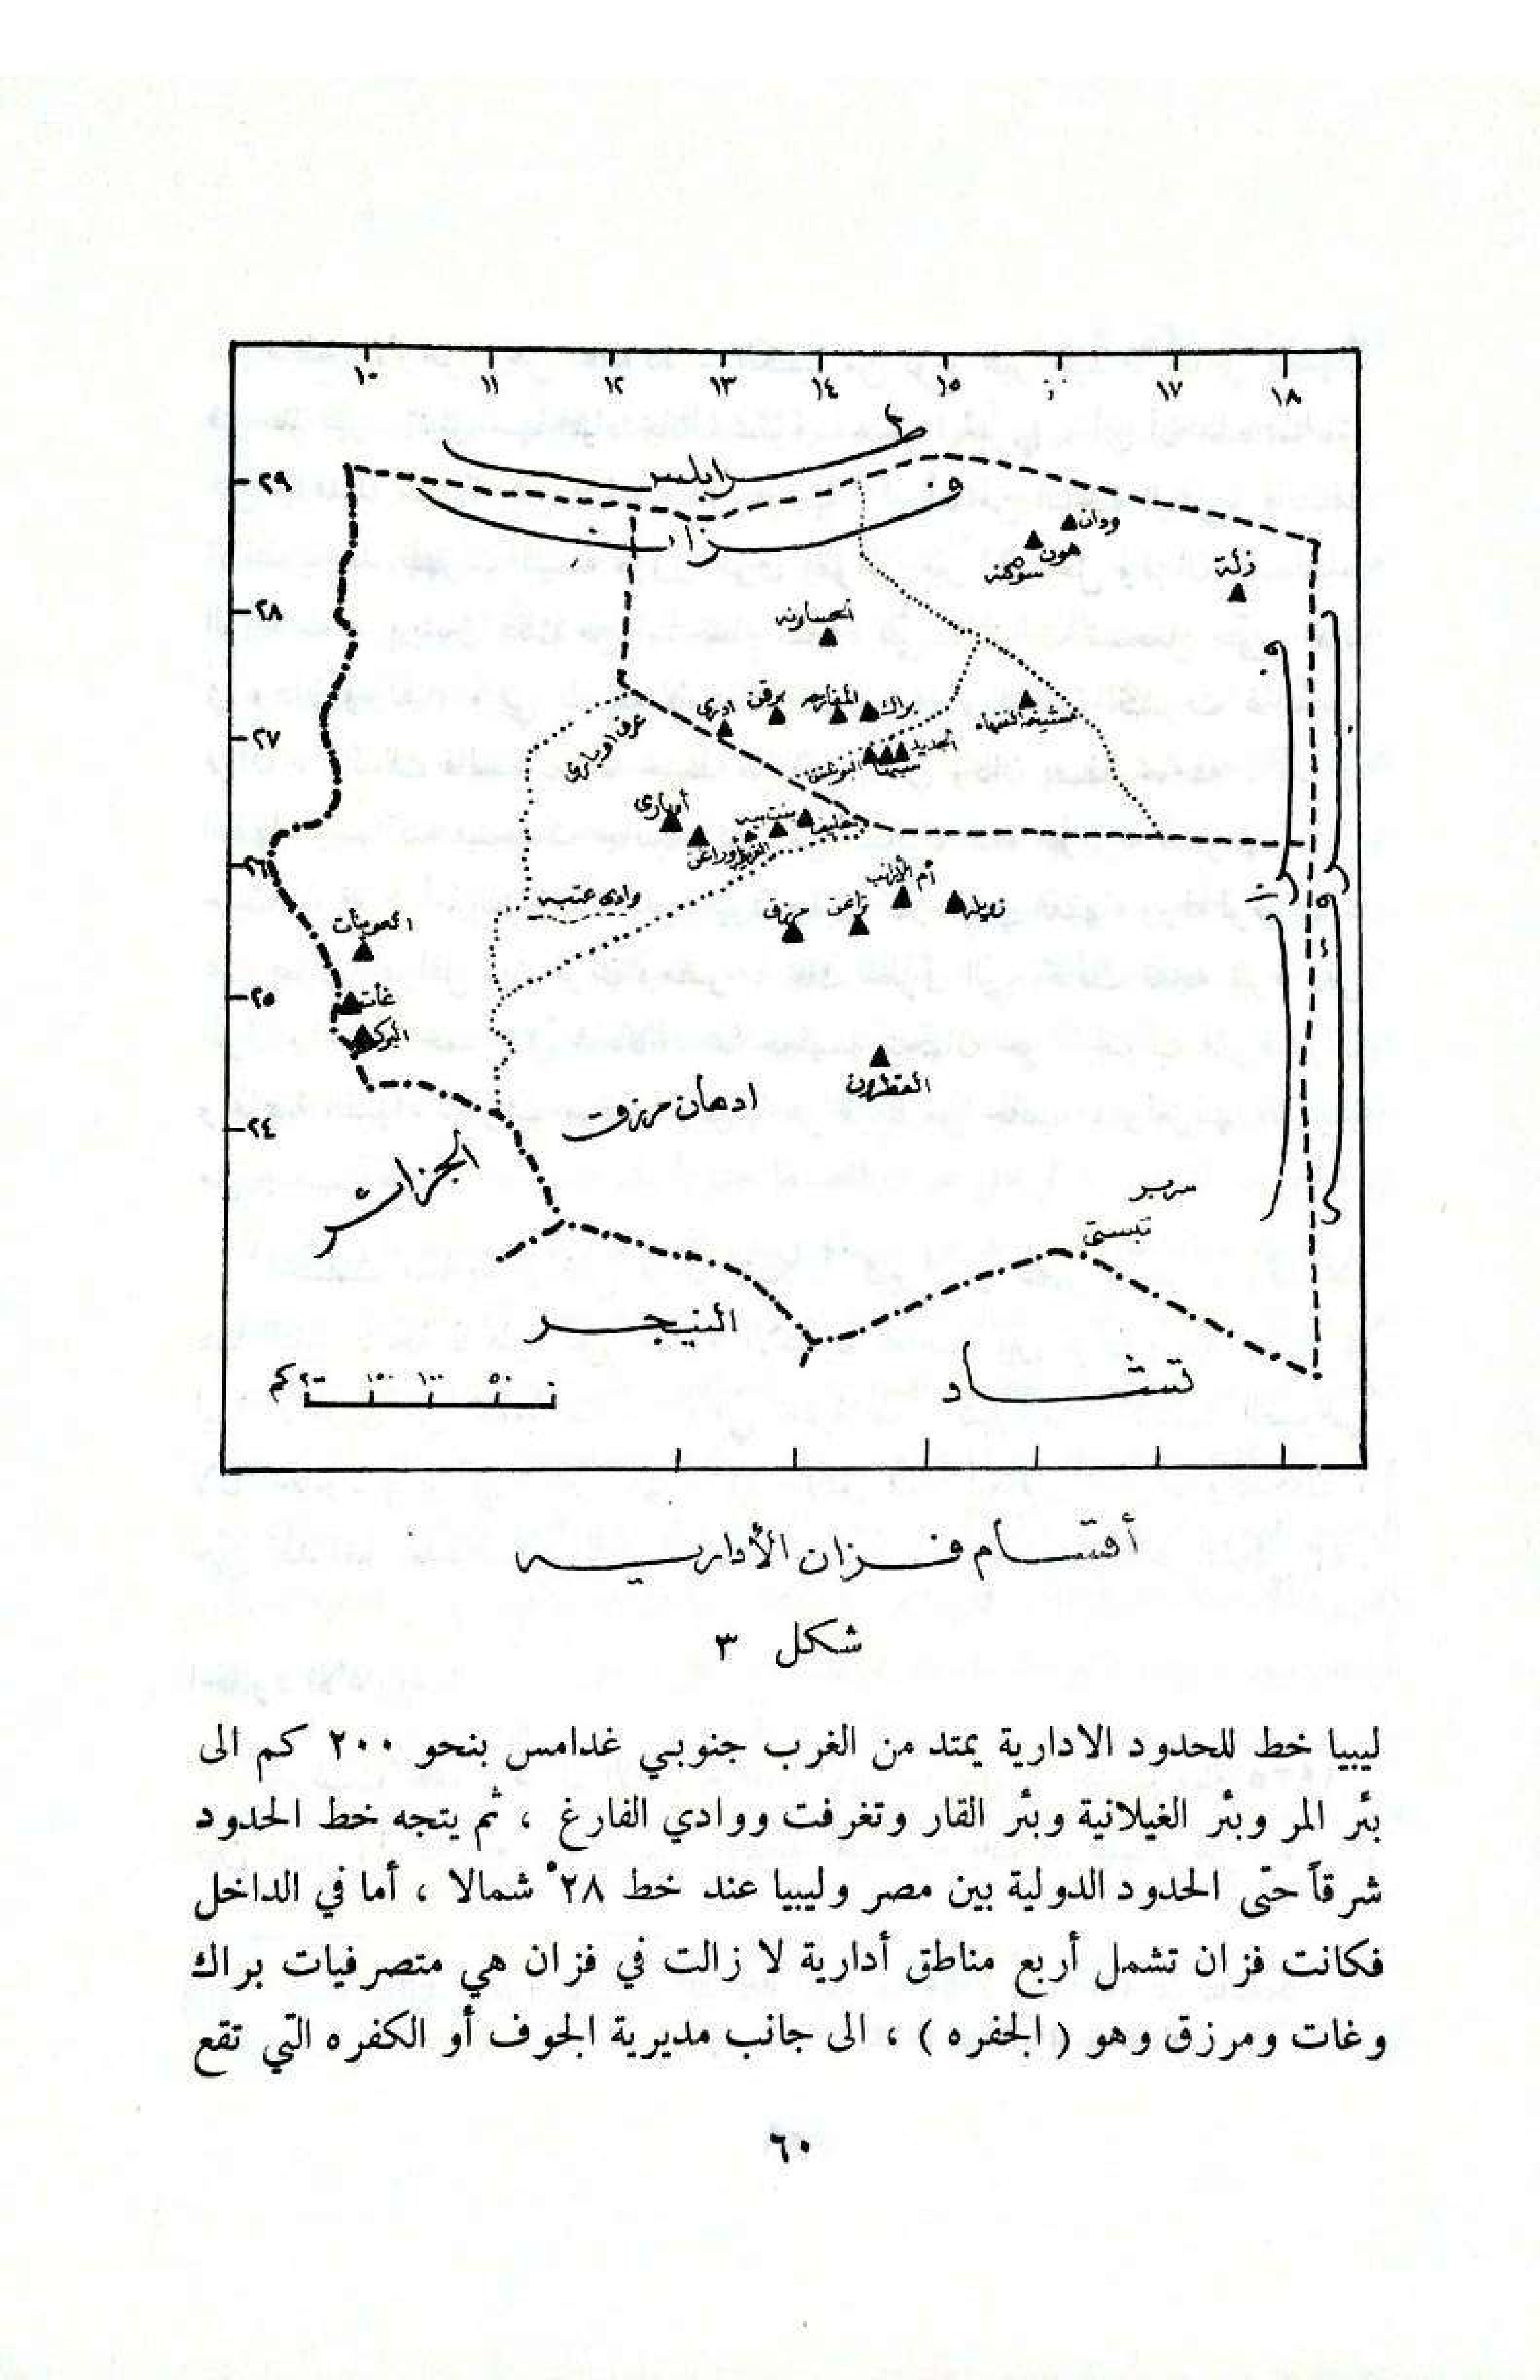 ١٠ ١١ ١٢ ١٣ ١٤ ١٥ ١٧ ١٨
٢٩
٢٨
٢٧
٢٦
٢٥
٢٤
طرابلس
فزان
ودان
هون
سوكنه
زلة
الحساونه
براك
المقارحه
برقن
ادرى
الجديد
عرق اوبارى
أوبارى
وادى عتبه
أم الأرانب
زويله
تراغن
مرزق
العوينات
غات
البركت
القطرون
ادهان مرزق
سرير
تبستى
الجزائر
النيجر
تشاد
فزان
٥٠ ١٠٠ ١٥٠ ٢٠٠ كم
أقسام فزان الأداريه
شكل ٣
ليبيا خط للحدود الادارية يمتد من الغرب جنوبي غدامس بنحو ٢٠٠ كم الى
بئر المر وبئر الغيلانية وبئر القار وتغرفت ووادي الفارغ ، ثم يتجه خط الحدود
شرقاً حتى الحدود الدولية بين مصر وليبيا عند خط ٢٨° شمالا ، أما في الداخل
فكانت فزان تشمل أربع مناطق أدارية لا زالت في فزان هي متصرفيات براك
وغات ومرزق وهو ( الجفره ) ، الى جانب مديرية الجوف أو الكفره التي تقع
٦٠